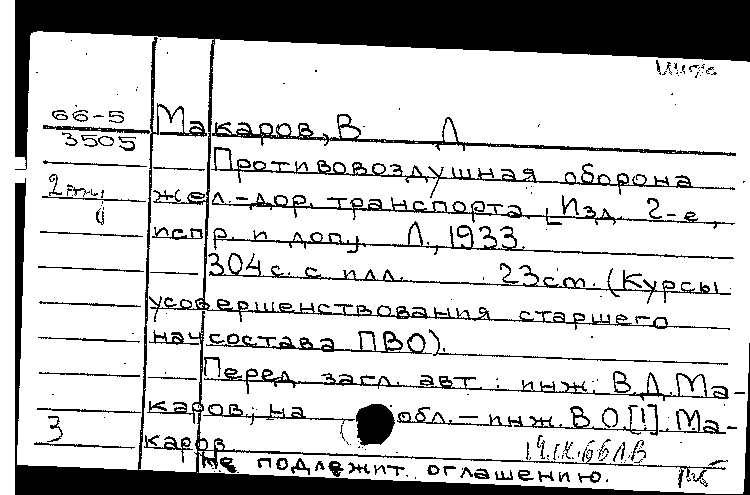 66-5
3505
Макаров, В Д
Противовоздушная оборона
2
жел.-дор. транспорта. [Изд. 2-е,
испр. и доп. Л., 1933.
304 с. с илл. 23 см. (Курсы
усовершенствования старшего
начсостава ПВО).
Перед загл. авт.: инж. В.Д. Ма-
каров; на обл. – инж. В.О. [!] Ма-
3
каров
19.IX.66 ЛВ
Не подлежит оглашению.